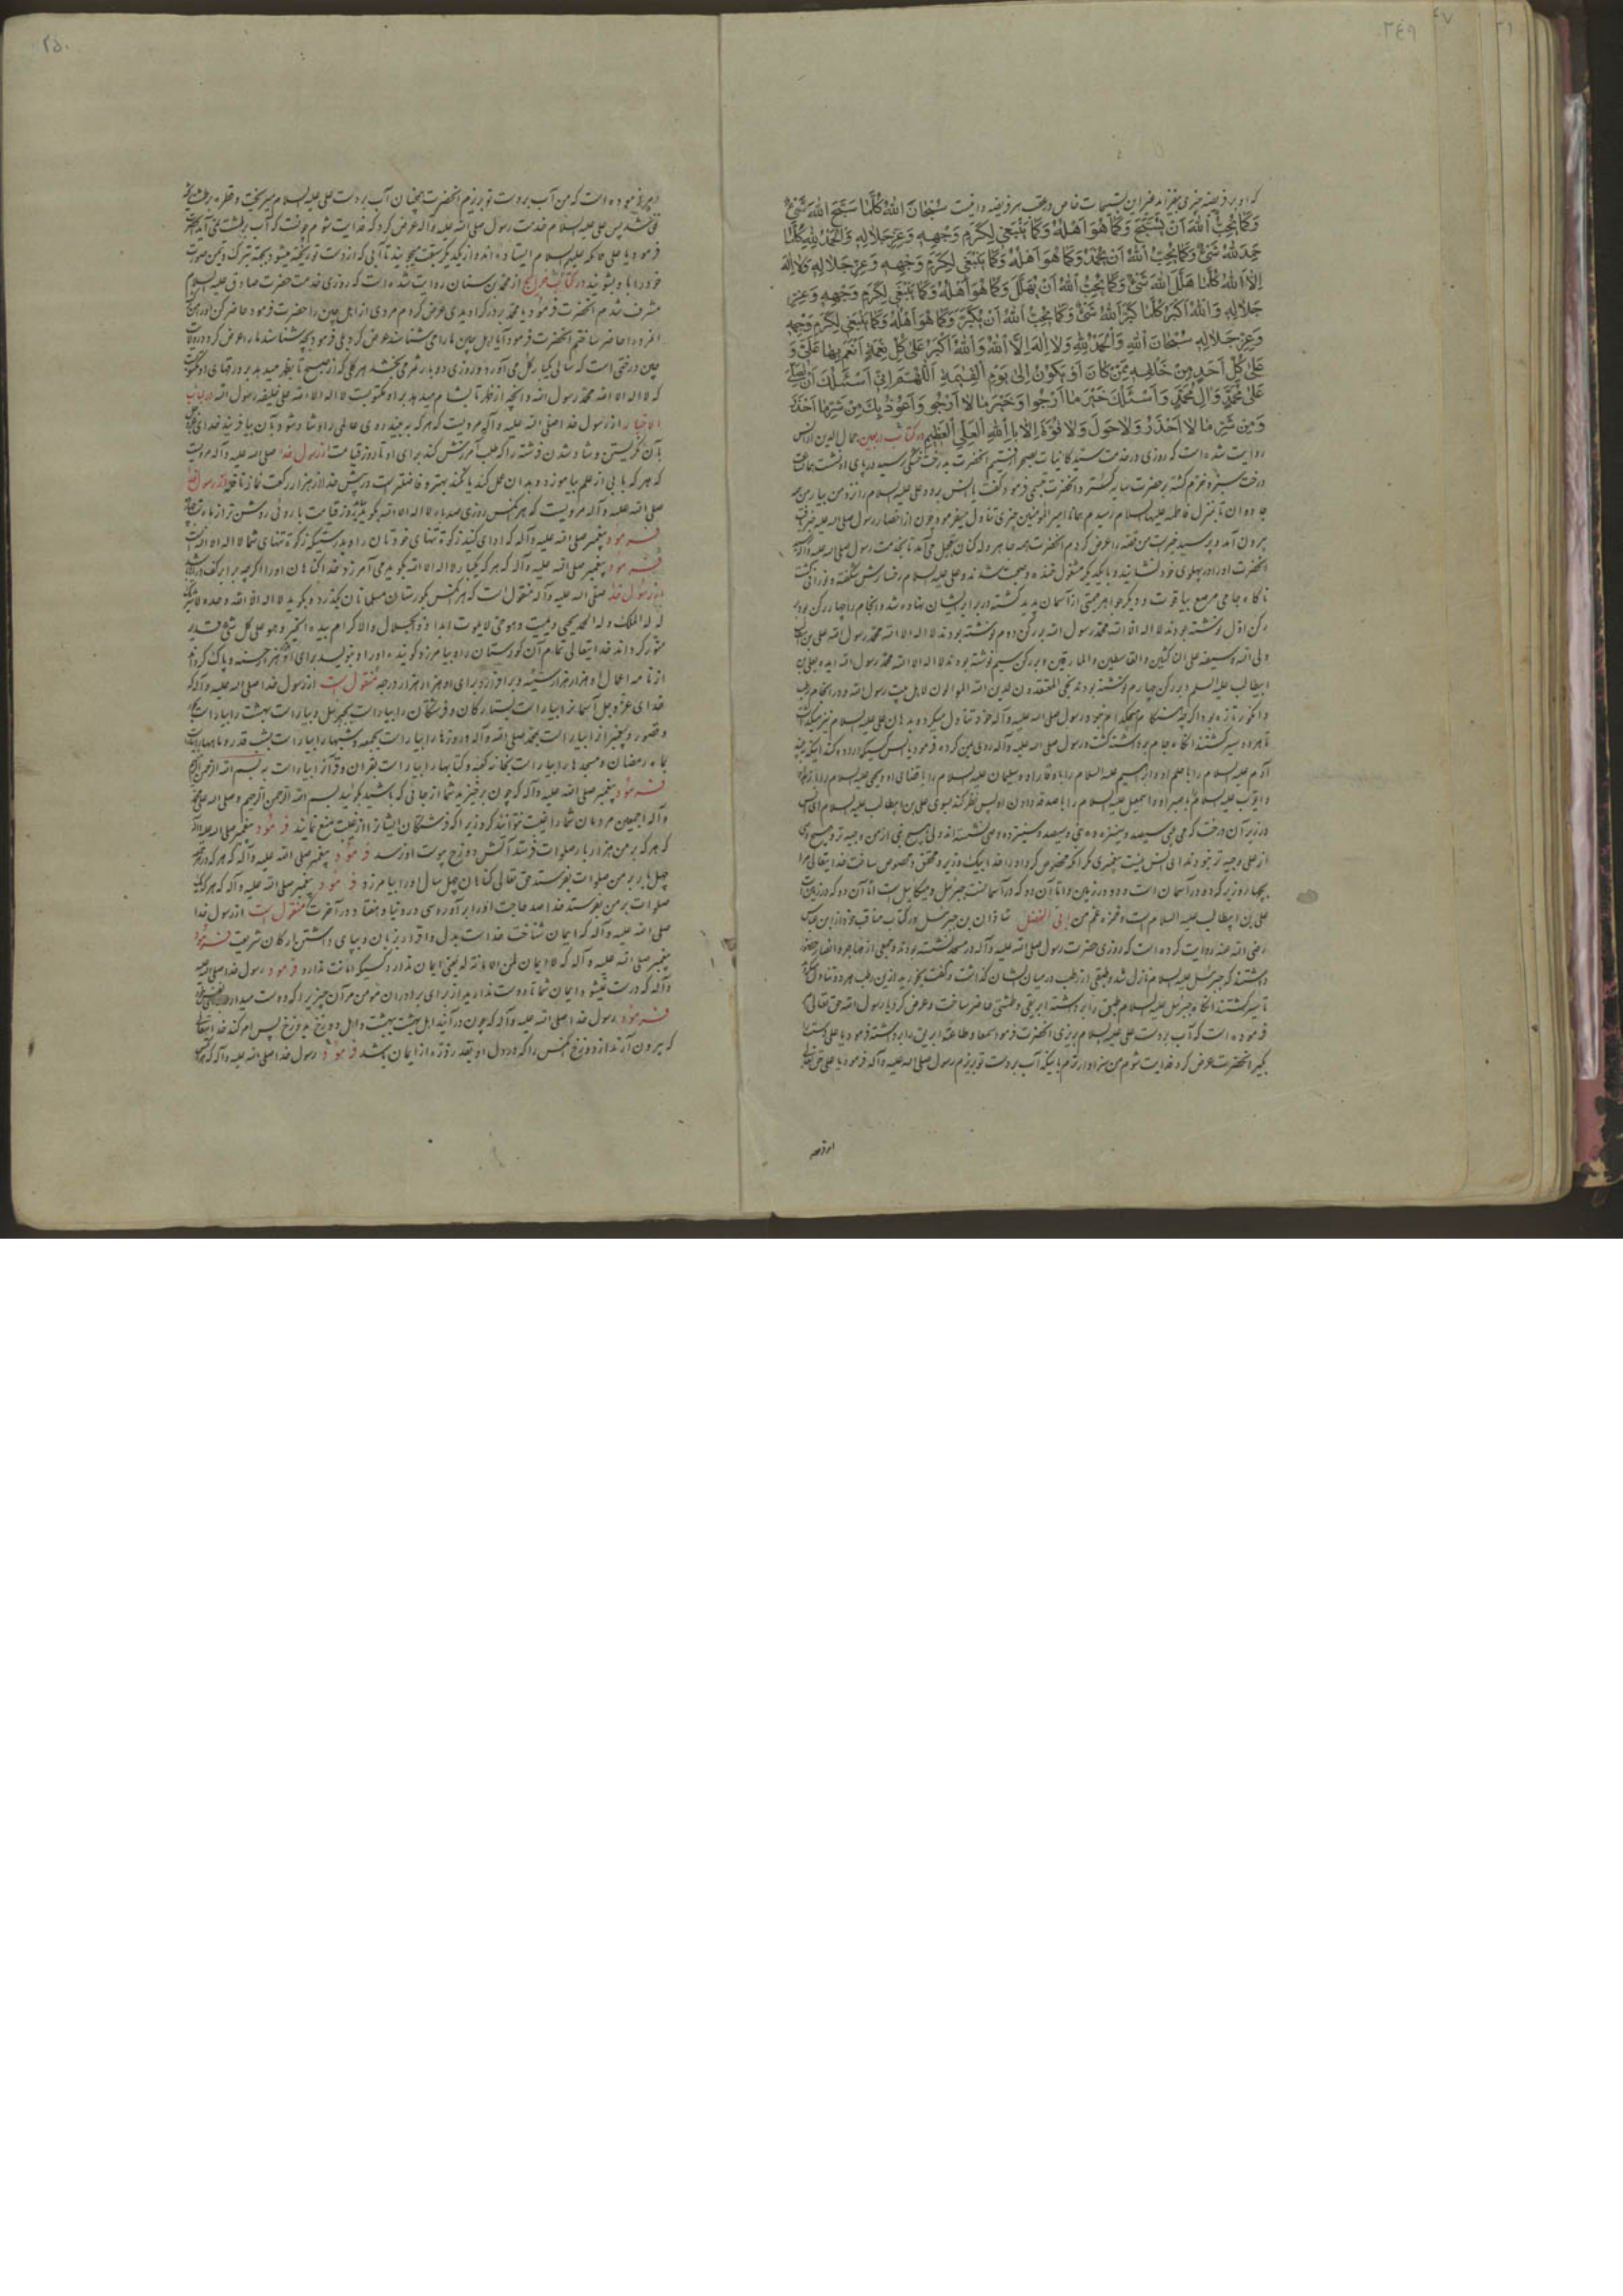 ۳۴۹
که او بر فریضه خیری بیفزاید فقرا این تسبیحات خاص در عقب هر فریضه وافیست سُبْحَانَ اللهِ كُلَّمَا سَبَّحَ اللهَ شَيْءٌ
وَكَمَا يُحِبُّ اللهُ أَنْ يُسَبَّحَ وَكَمَا هُوَ أَهْلُهُ وَكَمَا يَنْبَغِي لِكَرَمِ وَجْهِهِ وَعِزِّ جَلَالِهِ وَالْحَمْدُ لِلهِ كُلَّمَا
حَمِدَ اللهَ شَيْءٌ وَكَمَا يُحِبُّ اللهُ أَنْ يُحْمَدَ وَكَمَا هُوَ أَهْلُهُ وَكَمَا يَنْبَغِي لِكَرَمِ وَجْهِهِ وَعِزِّ جَلَالِهِ وَلَا إِلَهَ
إِلَّا اللهُ كُلَّمَا هَلَّلَ اللهَ شَيْءٌ وَكَمَا يُحِبُّ اللهُ أَنْ يُهَلَّلَ وَكَمَا هُوَ أَهْلُهُ وَكَمَا يَنْبَغِي لِكَرَمِ وَجْهِهِ وَعِزِّ
جَلَالِهِ وَاللهُ أَكْبَرُ كُلَّمَا كَبَّرَ اللهَ شَيْءٌ وَكَمَا يُحِبُّ اللهُ أَنْ يُكَبَّرَ وَكَمَا هُوَ أَهْلُهُ وَكَمَا يَنْبَغِي لِكَرَمِ وَجْهِهِ
وَعِزِّ جَلَالِهِ سُبْحَانَ اللهِ وَالْحَمْدُ لِلهِ وَلَا إِلَهَ إِلَّا اللهُ وَاللهُ أَكْبَرُ عَلَى كُلِّ نِعْمَةٍ أَنْعَمَ بِهَا عَلَيَّ وَ
عَلَى كُلِّ أَحَدٍ مِنْ خَلْقِهِ مِمَّنْ كَانَ أَوْ يَكُونُ إِلَى يَوْمِ الْقِيمَةِ اَللّهُمَّ إِنِّي أَسْئَلُكَ أَنْ تُصَلِّيَ
عَلَى مُحَمَّدٍ وَآلِ مُحَمَّدٍ وَأَسْئَلُكَ خَيْرَ مَا أَرْجُوا وَخَيْرَ مَا لَا أَرْجُو وَأَعُوذُ بِكَ مِنْ شَرِّ مَا أَحْذَرُ
وَمِنْ شَرِّ مَا لَا أَحْذَرُ وَلَا حَوْلَ وَلَا قُوَّةَ إِلَّا بِاللهِ الْعَلِيِّ الْعَظِيمِ در کتاب اربعین جمال الدین از انس
روایت شده است که روزی در خدمت سید کائنات بصحرا رفتیم انحضرت بدرخت خشکی رسید در پای او نشست
درخت سبز و خرم کشته بر حضرت سایه کسترد و انحضرت تبسمی فرمود کفت یا انس برو و علی علیه السلام را نزد من بیار من
تا بمنزل فاطمه علیها السلام رسیدم همانا امیر المومنین چیزی تناول میفرمود چون از احضار رسول صلی الله علیه
بیرون آمد و پرسید خیرست من قصه را عرض کردم انحضرت تعجیل می آمد تا بخدمت رسول صلی الله علیه وآله
انحضرت او را در پهلوی خود نشانید و با یکدیکر مشغول خنده و صحبت شدند و علی علیه السلام
ناکاه جامی مرصع بیاقوت و دیکر جواهر قیمتی از آسمان پدید کشته در برابر ایشان نهاده شد و انجام را چهار رکن بود بر
رکن اول نوشته بودند لا اله الا الله محمد رسول الله بر رکن دوم نوشته بودند لا اله الا الله محمد رسول الله علی بن ابی
ولی الله وسیفه علی الناکثین والقاسطین والمارقین و بر رکن سیم نوشته بودند لا اله الا الله محمد رسول الله ایده بعلی بن
ابیطالب علیه السلم و بر رکن چهارم نوشته بودند نجی المعتقدون لدین الله الموالون لاهل بیت رسول الله و در انجام رطب
و انکور تازه بود رسول صلی الله علیه وآله خود تناول میکرد و بدهان علی علیه السلام نیز میکذاشت
تا هر دو سیر کشتند انکاه جام برداشته کشت و رسول صلی الله علیه وآله روی بمن کرده فرمود یا انس
آدم علیه السلام را با علم او و ابراهیم علیه السلام را باوقار او و سلیمان علیه السلام را با قضای او و یحیی علیه السلام را با زهد
و ایوب علیه السلام با صبر او و اسمعیل علیه السلام را با صدق او پس نظر کند بسوی علی بن ابیطالب علیه السلام ای انس
در زیر آن درخت که می بینی سیصد و سیزده نبی و سیصد و سیزده وصی نشسته اند ولی هیچ نبی از من وجیه تر و هیچ وصی
از علی وجیه تر نبود ای انس نیست پیغمبری مکر آنکه
بچهار وزیر که دو در آسمان است و دو در زمین و اما آن دو که در آسمانست جبرئیل و میکائیل است اما آن دو که در زمین
علی بن ابیطالب علیه السلام است و حمزه عم من ابی الفضل شاذان بن جبرئیل در کتاب مناقب خود از ابن عباس
رضی الله عنه روایت کرده است که روزی حضرت رسول صلی الله علیه وآله در مسجد نشسته بودند و جمعی از مهاجر و انصار حضور
داشتند که جبرئیل علیه السلام نازل شد و طبقی از رطب در میان ایشان کذاشت و کفت بخورید از این رطب هر دو تناول
تا سیر کشتند انکاه جبرئیل علیه السلام طبق را برداشته ابریقی و طشتی حاضر ساخت و عرض کرد یا رسول الله حق تعالی
فرموده است که آب بر دست علی علیه السلام بریزی انحضرت فرمود سمعا وطاعة ابریق را برداشته فرمود یا علی دستت را
بکیر انحضرت عرض کرد فدایت شوم من سزاوارترم باینکه آب بر دست تو بریزم رسول صلی الله علیه وآله فرمود یا علی حق تعالی
امر فرموده
۲۵۰
امر فرموده است که من آب بر دست تو بریزم انحضرت همچنان آب بر دست علی علیه السلام میریخت و قطره بر طشت
نمی شد پس علی علیه السلام خدمت رسول صلی الله علیه وآله عرض کرد که فدایت شوم چونست که آب بر طشت نمی آید
فرمود یا علی ملائکه علیهم السلام ایستاده اند و از یکدیکر سبقت میجویند تا آبی که از دست تو ریخته میشود بجهة تبرک و یمن صورت
خود را با و بشویند در کتاب خرایج از محمد بن سنان روایت شده است که روزی خدمت حضرت صادق علیه السلام
مشرف شدم انحضرت فرمود یا محمد بر در کرا دیدی عرض کردم مردی از اهل چین را حضرت فرمود حاضر کن او را من
انمرد را حاضر ساختم انحضرت فرمود آیا اهل چین ما را می شناسند عرض کرد بلی فرمود بچه شناسند ما را عرض کرد در ولایت
چین درختی است که سالی یکبار کل می آورد و روزی دو بار ثمر می بخشد هر کلی که از صبح تا بظهر میدهد بر ورقهای او مکتوبست
که لا اله الا الله محمد رسول الله و آنچه از ظهر تا بشام میدهد بر او مکتوبست لا اله الا الله علی خلیفه رسول الله در کتاب
از رسول خدا صلی الله علیه وآله مرویست که هر که بر بیند روی عالمی را و شاد شود بآن بیافریند خدای
بآن نکریستن و شاد شدن فرشته را که طلب آمرزش کند برای او تا روز قیامت از رسول خدا صلی الله علیه وآله مرویست
که هر که بابی از علم بیاموزد و بدان عمل کند یا نکند بهتر و فاضلتر است در پیش خدا از هزار رکعت نماز نافله از رسول خدا
صلی الله علیه وآله مرویست که هر کس روزی صد بار لا اله الا الله بکوید روز قیامت با روئی روشن تر از ماه
فرمود پیغمبر صلی الله علیه وآله که ادا کنید زکوة تنهای خود تان را و بدرستیکه زکوة تنهای شما لا اله الا الله است
فرمود پیغمبر صلی الله علیه وآله که هر که یکبار لا اله الا الله بکوید می آمرزد خدا کناهان او را اکرچه برابر کف دریا
از رسول خدا صلی الله علیه وآله منقول است که هر کس بکورستان مسلمانان بکذرد و بکوید لا اله الا الله وحده لا شریک
له له الملک وله الحمد یحیی ویمیت وهو حی لا یموت ابدا ذو الجلال والاکرام بیده الخیر وهو علی کل شئ قدیر
منور کرداند خدایتعالی تمام آن کورستان را و بیامرزد کوینده او را و بنویسد برای او هزار هزار حسنه و پاک کرداند
از نامه اعمال او هزار هزار سیئه و برافرازد برای او هزار هزار درجه منقول است از رسول خدا صلی الله علیه وآله که
خدای عز وجل آسمانرا بیاراست بستارکان و فرشتکان را بیاراست بجبرئیل و بیاراست بهشت را
و قصور و پیغمبرانرا بیاراست بمحمد صلی الله علیه وآله و روزها را بیاراست بجمعه و شبها را بیاراست بشب قدر و ماهها را بیاراست
بماه رمضان و مسجدها را بیاراست بخانه کعبه و کتابها را بیاراست بقران و قرآنرا بیاراست به بسم الله الرحمن الرحیم
فرمود پیغمبر صلی الله علیه وآله که چون برخیزید شما از جائی که باشید بکوئید بسم الله الرحمن الرحیم وصلی الله علی محمد
وآله اجمعین مردمان شما را غیبت نتوانند کرد زیرا که فرشتکان ایشانرا از غیبت منع نمایند فرمود پیغمبر صلی الله علیه وآله
که هر که بر من هزار بار صلوات فرستد آتش دوزخ بپوست او نرسد فرمود پیغمبر صلی الله علیه وآله که هر که در
چهل بار بر من صلوات بفرستد حق تعالی کناهان چهل سال او را بیامرزد فرمود پیغمبر صلی الله علیه وآله که هر که
صلوات بر من بفرستد خدا صد حاجت او را برآورد سی در دنیا و هفتاد در آخرت منقول است از رسول خدا
صلی الله علیه وآله که ایمان شناخت خدا است بدل و اقرار بزبان و بپای داشتن بارکان شریعت فرمود
پیغمبر صلی الله علیه وآله که لا ایمان لمن لا امانة له یعنی ایمان ندارد کسیکه امانت ندارد فرمود رسول خدا صلی الله علیه
وآله که درست نمیشود ایمان شما تا دوست ندارید از برای برادران مومن مر آن چیزیرا که دوست میدارید
فرمود رسول خدا صلی الله علیه وآله که چون در آیند اهل بهشت ببهشت و اهل دوزخ بدوزخ پس امر کند خدایتعالی
که بیرون آرند از دوزخ هر کس را که در دل او بقدر ذره از ایمان باشد فرمود رسول خدا صلی الله علیه وآله که